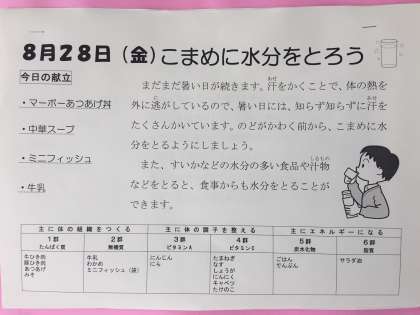 8月28日（金）こまめに水分をとろう
今日の献立
・マーボーあつあげ丼
・中華スープ
・ミニフィッシュ
・牛乳
まだまだ暑い日が続きます。汗をかくことで、体の熱を
外に逃がしているので、暑い日には、知らず知らずに汗を
たくさんかいています。のどがかわく前から、こまめに水
分をとるようにしましょう。
また、すいかなどの水分の多い食品や汁物
などをとると、食事からも水分をとることが
できます。
主に体の組織をつくる 主に体の調子を整える 主にエネルギーになる
1群 2群 3群 4群 5群 6群
たんぱく質 無機質 ビタミンA ビタミンC 炭水化物 脂質
牛ひき肉 牛乳 にんじん たまねぎ ごはん サラダ油
豚ひき肉 わかめ にら なす でんぷん
あつあげ ミニフィッシュ（袋） しょうが
みそ にんにく
キャベツ
たけのこ